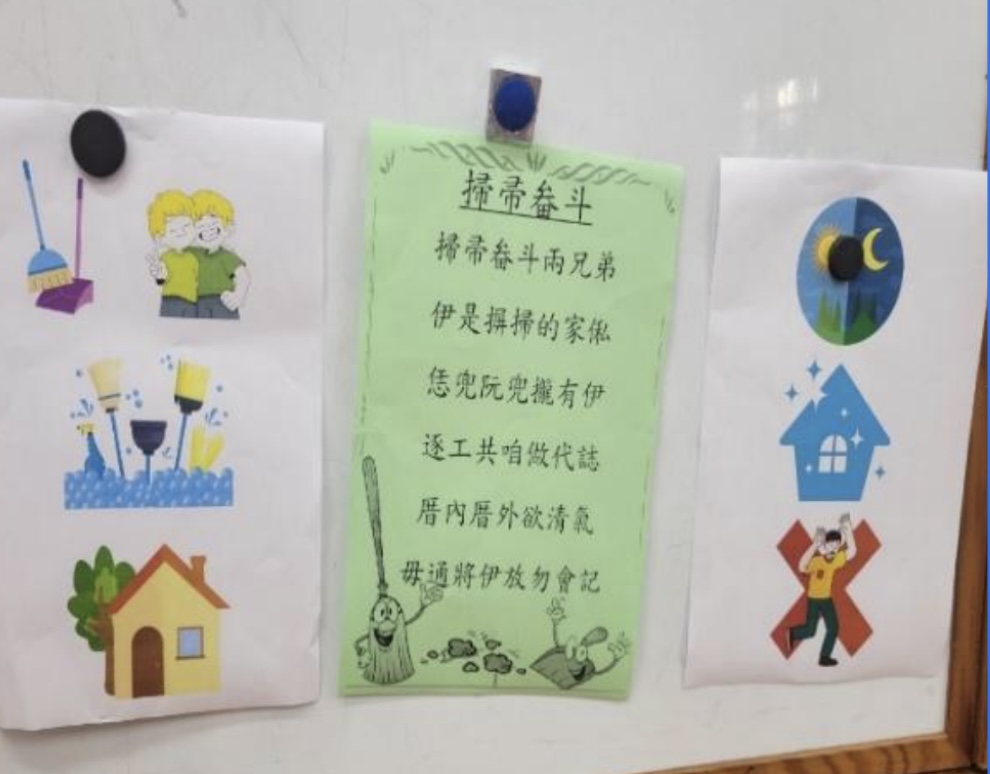 掃帚畚斗
掃帚畚斗兩兄弟
伊是摒掃的家俬
恁兜阮兜攏有伊
逐工共咱做代誌
厝內厝外欲清氣
毋通將伊放勿會記